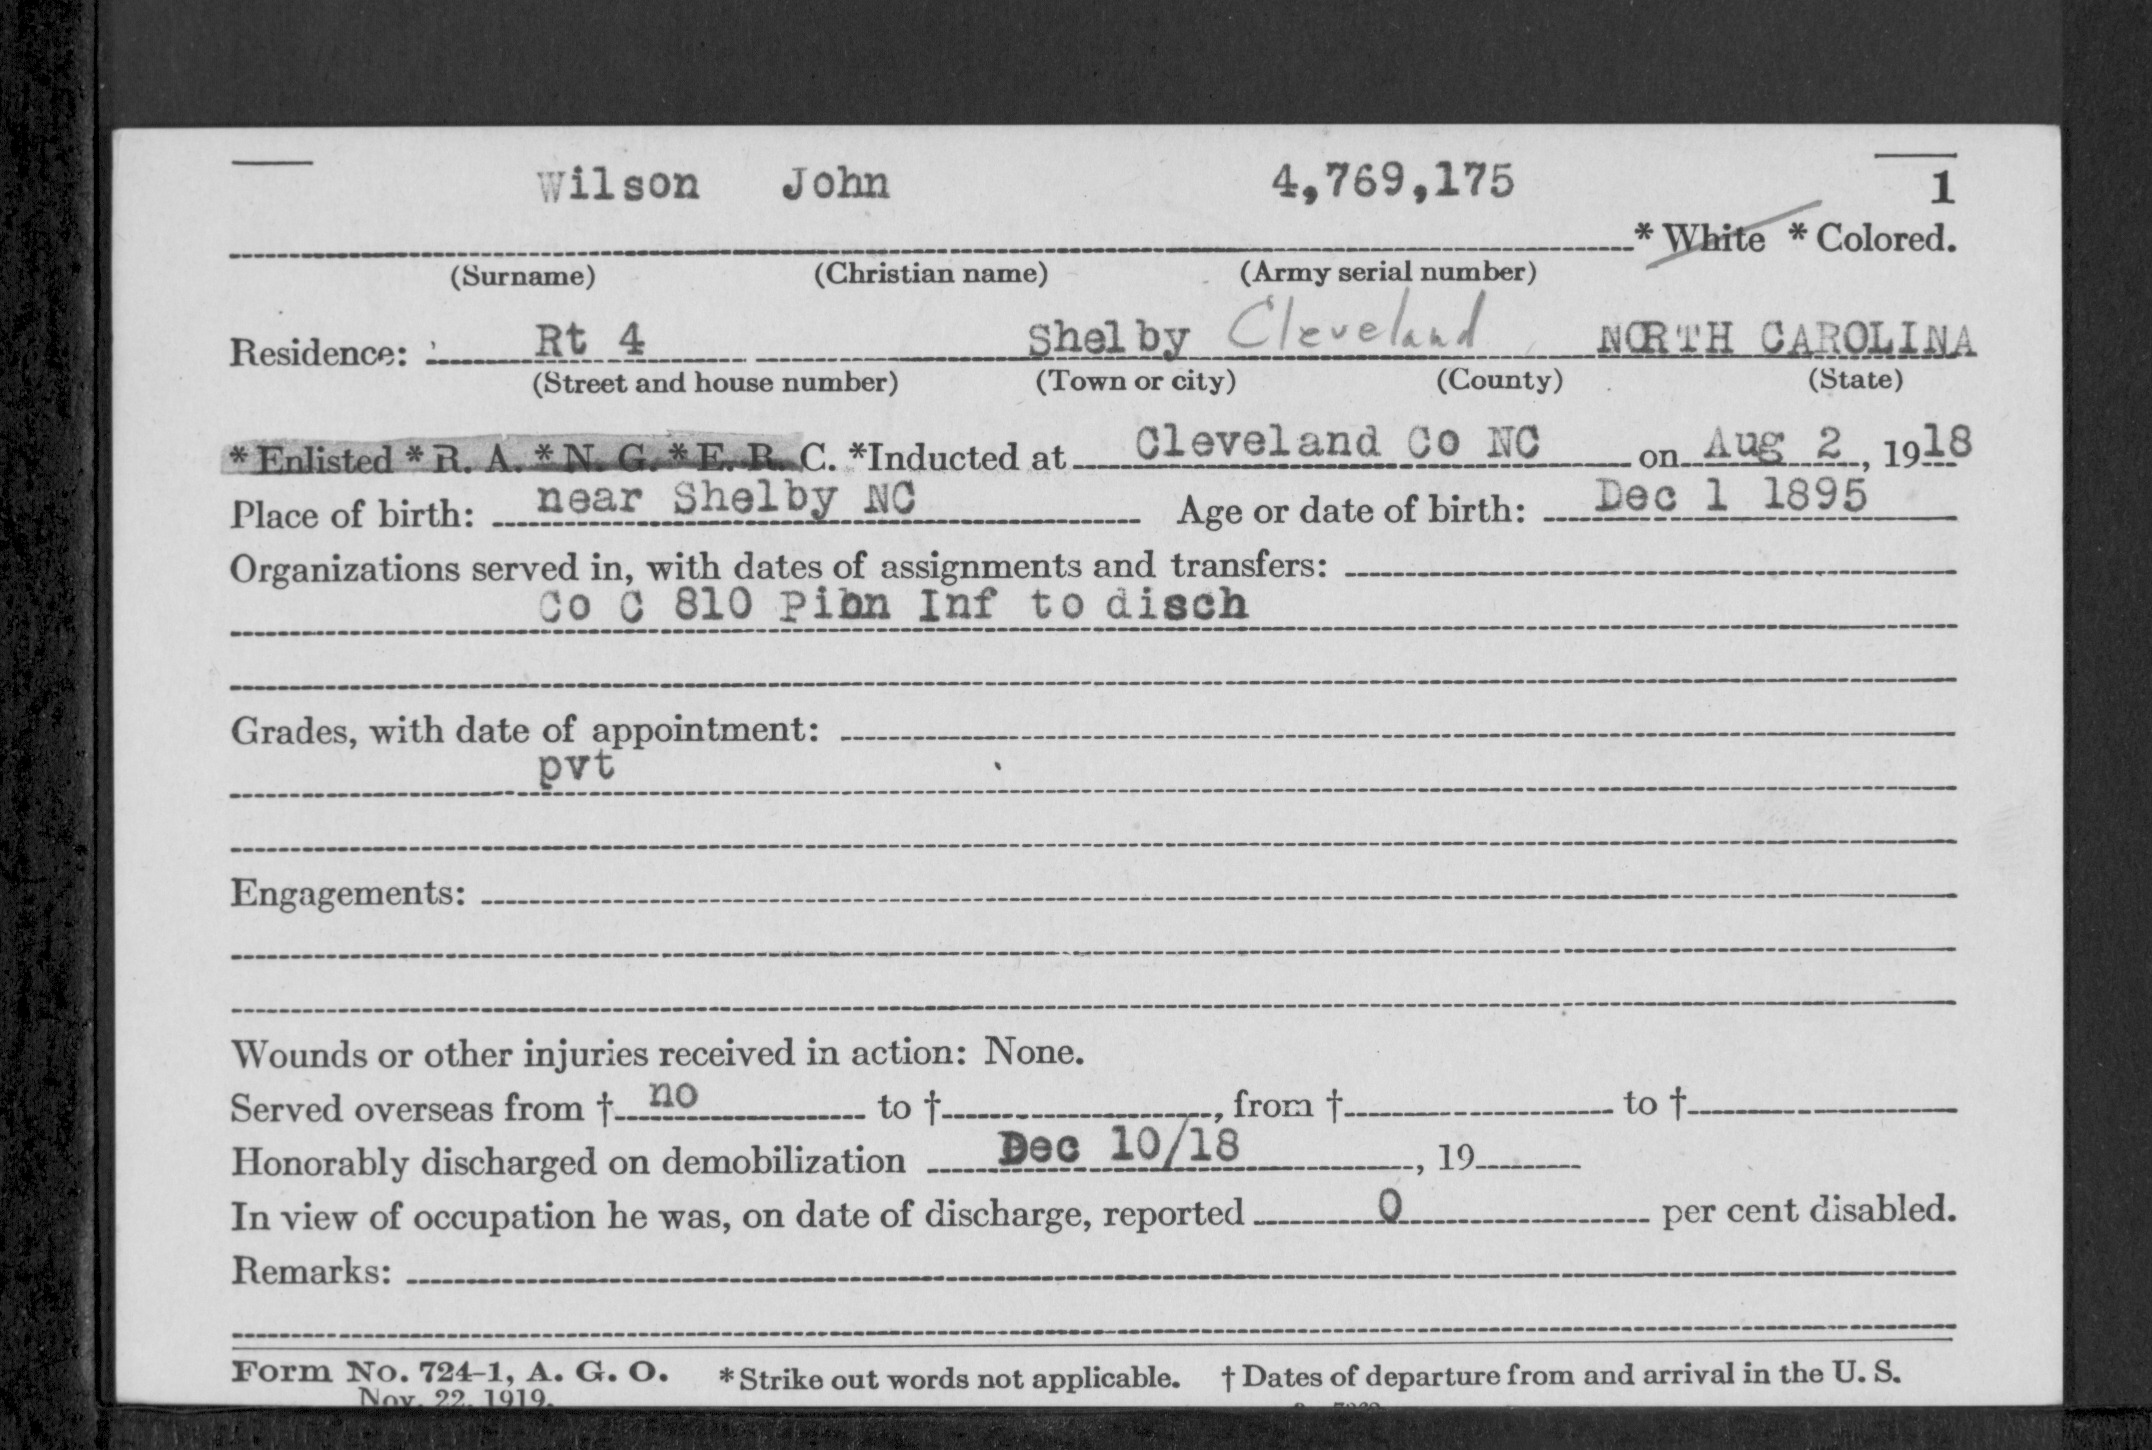 Wilson John 4,769,175 1
* White * Colored.
(Surname) (Christian name) (Army serial number)
Residence: Rt 4 Shelby Cleveland NORTH CAROLINA
(Street and house number) (Town or city) (County) (State)
* Enlisted * R. A. * N. G. * E. R. C. *Inducted at Cleveland Co NC on Aug 2, 1918
Place of birth: near Shelby NC Age or date of birth: Dec 1 1895
Organizations served in, with dates of assignments and transfers:
Co C 810 Pion Inf to disch
Grades, with date of appointment:
pvt
Engagements:
Wounds or other injuries received in action: None.
Served overseas from † no to †, from † to †
Honorably discharged on demobilization Dec 10/18, 19
In view of occupation he was, on date of discharge, reported 0 per cent disabled.
Remarks:
Form No. 724-1, A. G. O. * Strike out words not applicable. † Dates of departure from and arrival in the U. S.
Nov. 22, 1919.